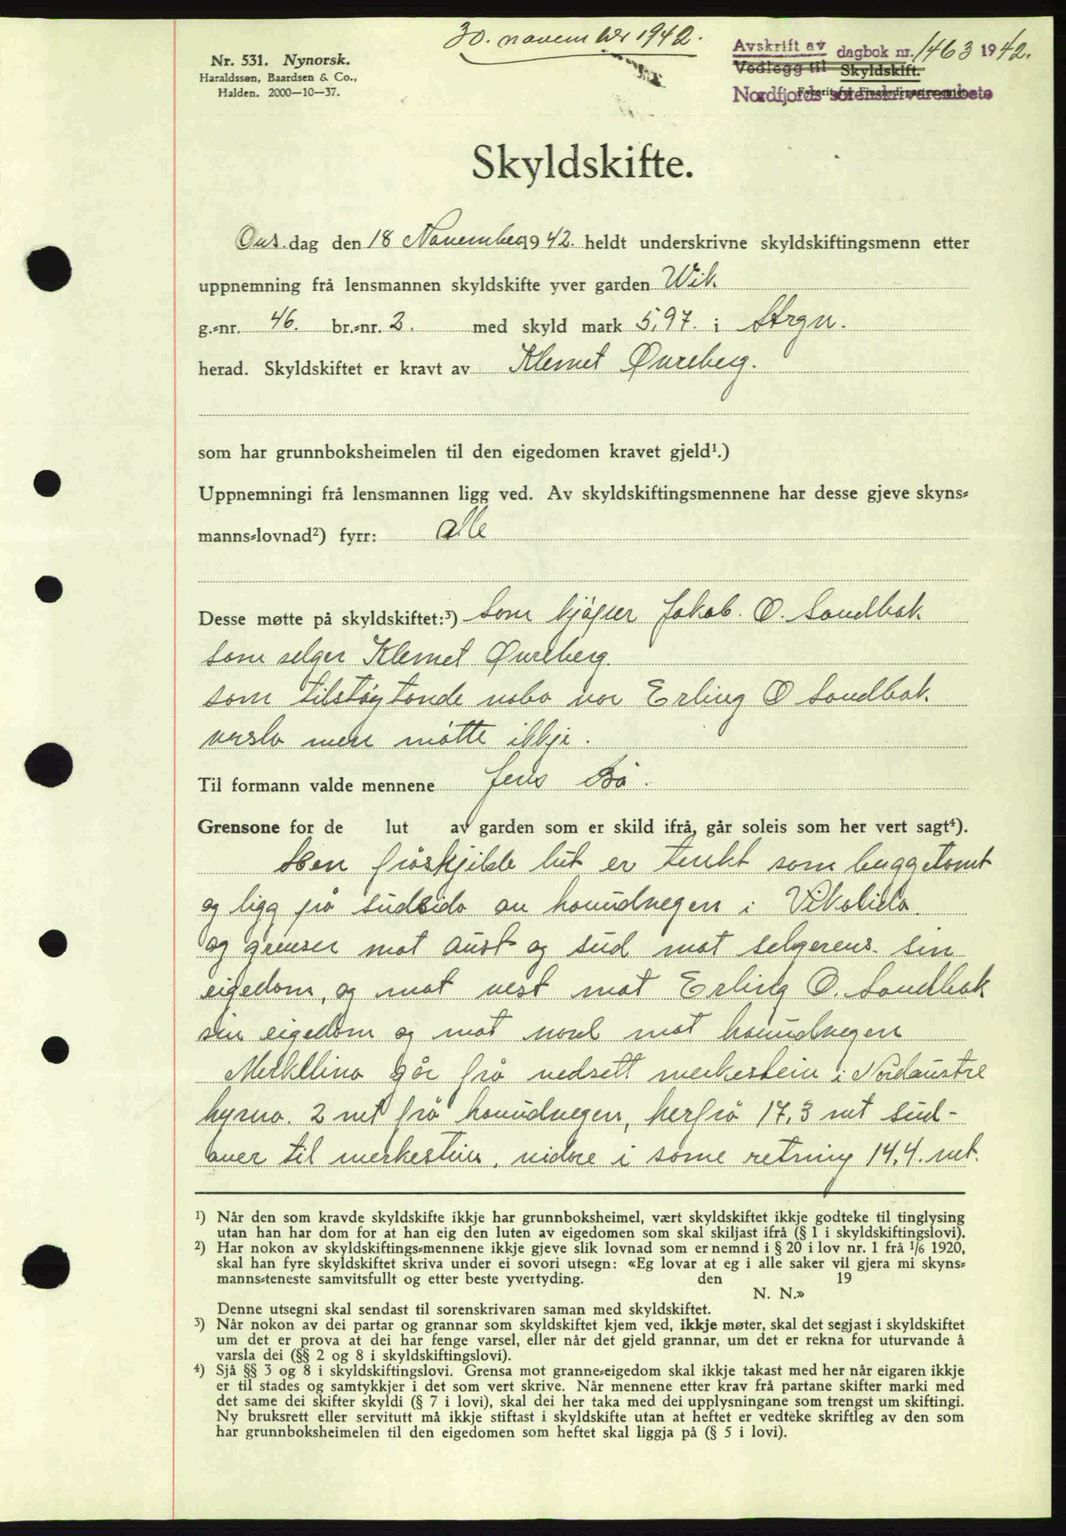 30. november 1942.
Avskrift av dagbok nr. 1463 1942.
Vedlegg til Skyldskift.
Nordfjords sorenskrivarembete
Nr. 531. Nynorsk.
Haraldssøn, Baardsen & Co.,
Halden. 2000—10—37.
Skyldskifte.
Ons.dag den 18 November 1942. heldt underskrivne skyldskiftingsmenn etter
uppnemning frå lensmannen skyldskifte yver garden Wik
g.-nr. 46. br.-nr. 2. med skyld mark 5,97. i Stryn.
herad. Skyldskiftet er kravt av Klemet Øvreberg.
som har grunnboksheimelen til den eigedomen kravet gjeld¹.)
Uppnemningi frå lensmannen ligg ved. Av skyldskiftingsmennene har desse gjeve skyns-
manns-lovnad²) fyrr: alle
Desse møtte på skyldskiftet:³) Som kjøper Jakob. O. Sandbak
som selger Klemet Øvreberg.
som tilstøytande nabo var Erling O Sandbak
varsla men møtte ikkje.
Til formann valde mennene Jens Bø.
Grensone for de lut av garden som er skild ifrå, går soleis som her vert sagt⁴).
Den fråskjilde lut er tenkt som byggetomt
og ligg på sudsida av hovudvegen i Vikalida.
og grenser mot aust og sud mot selgerens sin
eigedom, og mot vest mot Erling O. Sandbak
sin eigedom og mot nord mot hovudvegen
Merkelina går frå nedsett merkestein i Nordaustre
hyrna. 2 met frå hovudvegen, herfrå 17,3 met sud-
over til merkestein, vidare i same retning 14,4. met.
¹) Når den som kravde skyldskifte ikkje har grunnboksheimel, vært skyldskiftet ikkje godteke til tinglysing
utan han har dom for at han eig den luten av eigedomen som skal skiljast ifrå (§ 1 i skyldskiftingslovi).
²) Har nokon av skyldskiftings-mennene ikkje gjeve slik lovnad som er nemnd i § 20 i lov nr. 1 frå ¹/₆ 1920,
skal han fyre skyldskiftet skriva under ei sovori utsegn: «Eg lovar at eg i alle saker vil gjera mi skyns-
manns-teneste samvitsfullt og etter beste yvertyding. den 19
N. N.»
Denne utsegni skal sendast til sorenskrivaren saman med skyldskiftet.
³) Når nokon av dei partar og grannar som skyldskiftet kjem ved, ikkje møter, skal det segjast i skyldskiftet
um det er prova at dei har fenge varsel, eller når det gjeld grannar, um det er rekna for uturvande å
varsla dei (§§ 2 og 8 i skyldskiftingslovi).
⁴) Sjå §§ 3 og 8 i skyldskiftingslovi. Grensa mot granne-eigedom skal ikkje takast med her når eigaren ikkje
er til stades og samtykkjer i det som vert skrive. Når mennene etter krav frå partane skifter marki med
det same dei skifter skyldi (§ 7 i lovi), skal dei her taka med dei upplysningane som trengst um skiftingi.
Ny bruksrett eller servitutt må ikkje stiftast i skyldskifte utan at heftet er vedteke skriftleg av den som
har grunnboksheimelen til den eigedomen som heftet skal liggja på (§ 5 i lovi).